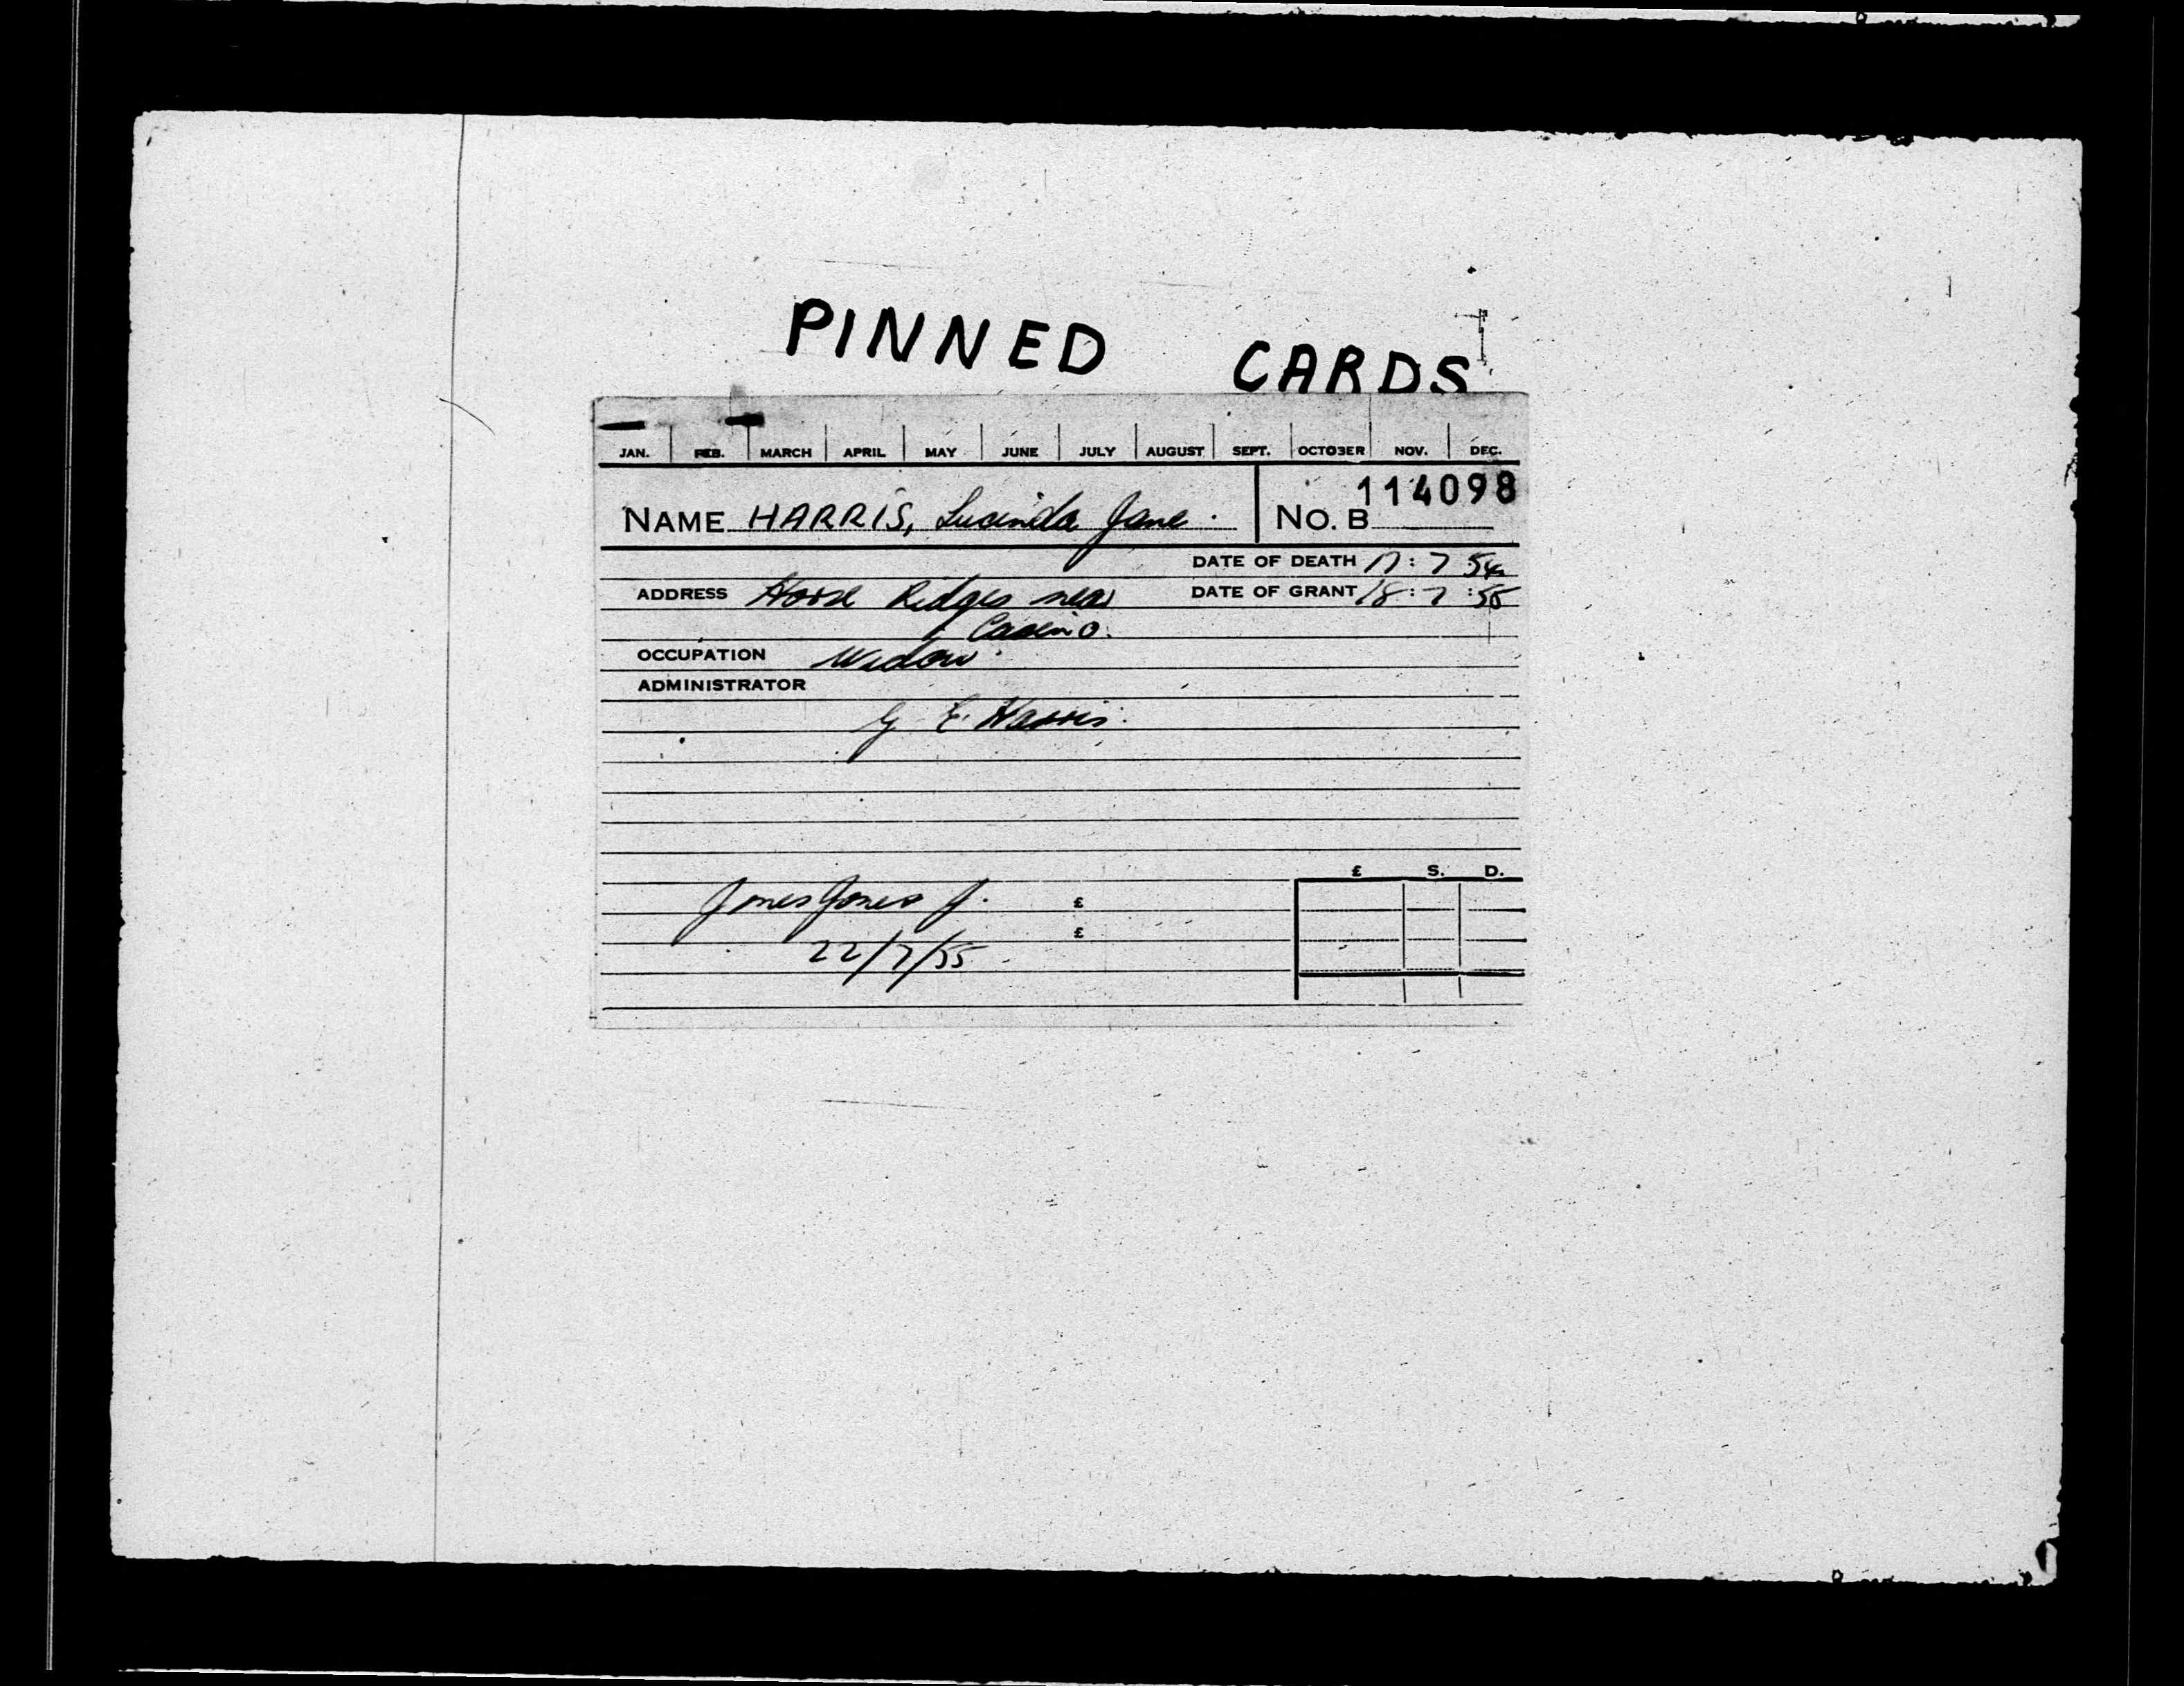 PINNED CARDS
JAN. FEB. MARCH APRIL MAY JUNE JULY AUGUST SEPT. OCTOBER NOV. DEC.
NAME HARRIS, Lucinda Jane. No. B 114098
DATE OF DEATH 17:7 54
ADDRESS Horse Ridges near DATE OF GRANT 18:7:55
Casino.
OCCUPATION Widow.
ADMINISTRATOR
G E. Harris.
£ S. D.
Jones Jones J. £
£
22/7/55